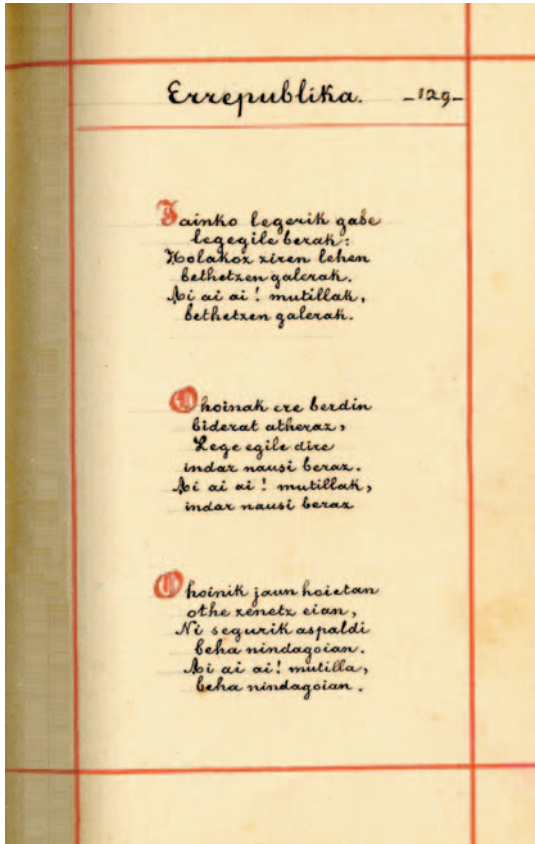 Errepublika. -129-
Jainko legerik gabe
legegile berak:
Holakoz ziren lehen
bethetzen galerak.
Ai ai ai! mutillak,
bethetzen galerak.
Ohoinak ere berdin
biderat atheraz,
Lege egile dire
indar nausi beraz.
Ai ai ai! mutillak,
indar nausi beraz
Ohoinik jaun hoietan
othe zenetz eian,
Ni segurik aspaldi
beha nindagoian.
Ai ai ai! mutilla,
beha nindagoian.